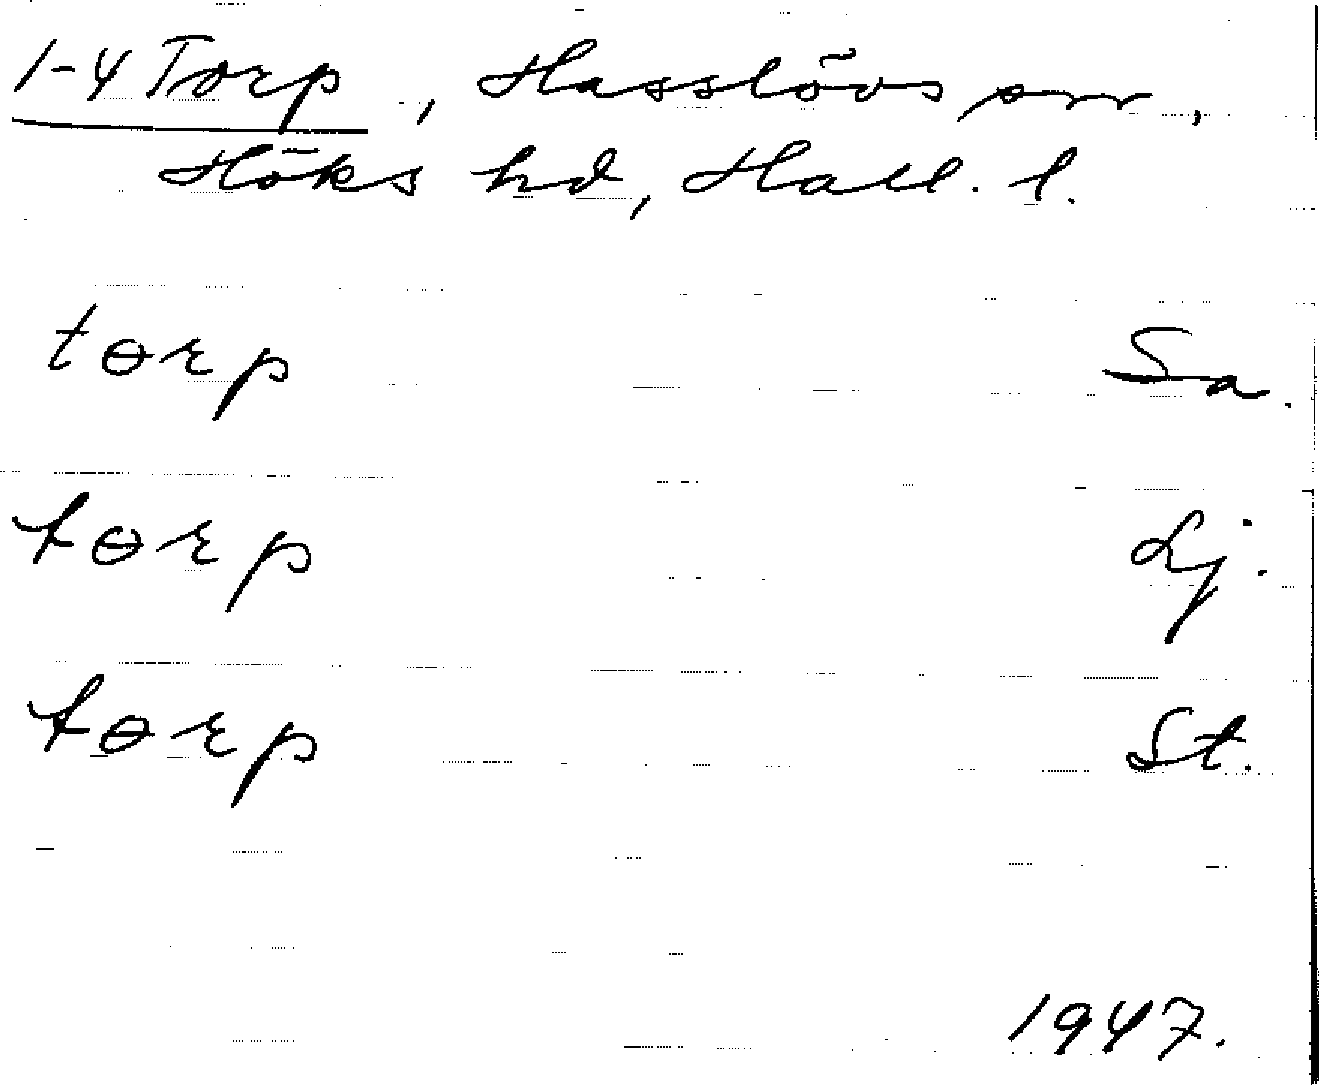 1-4 Torp, Hasslövs sn,
Höks hd, Hall. l.
tɵrp Sa.
tɵrp Lj.
tɵrp St.
1947.